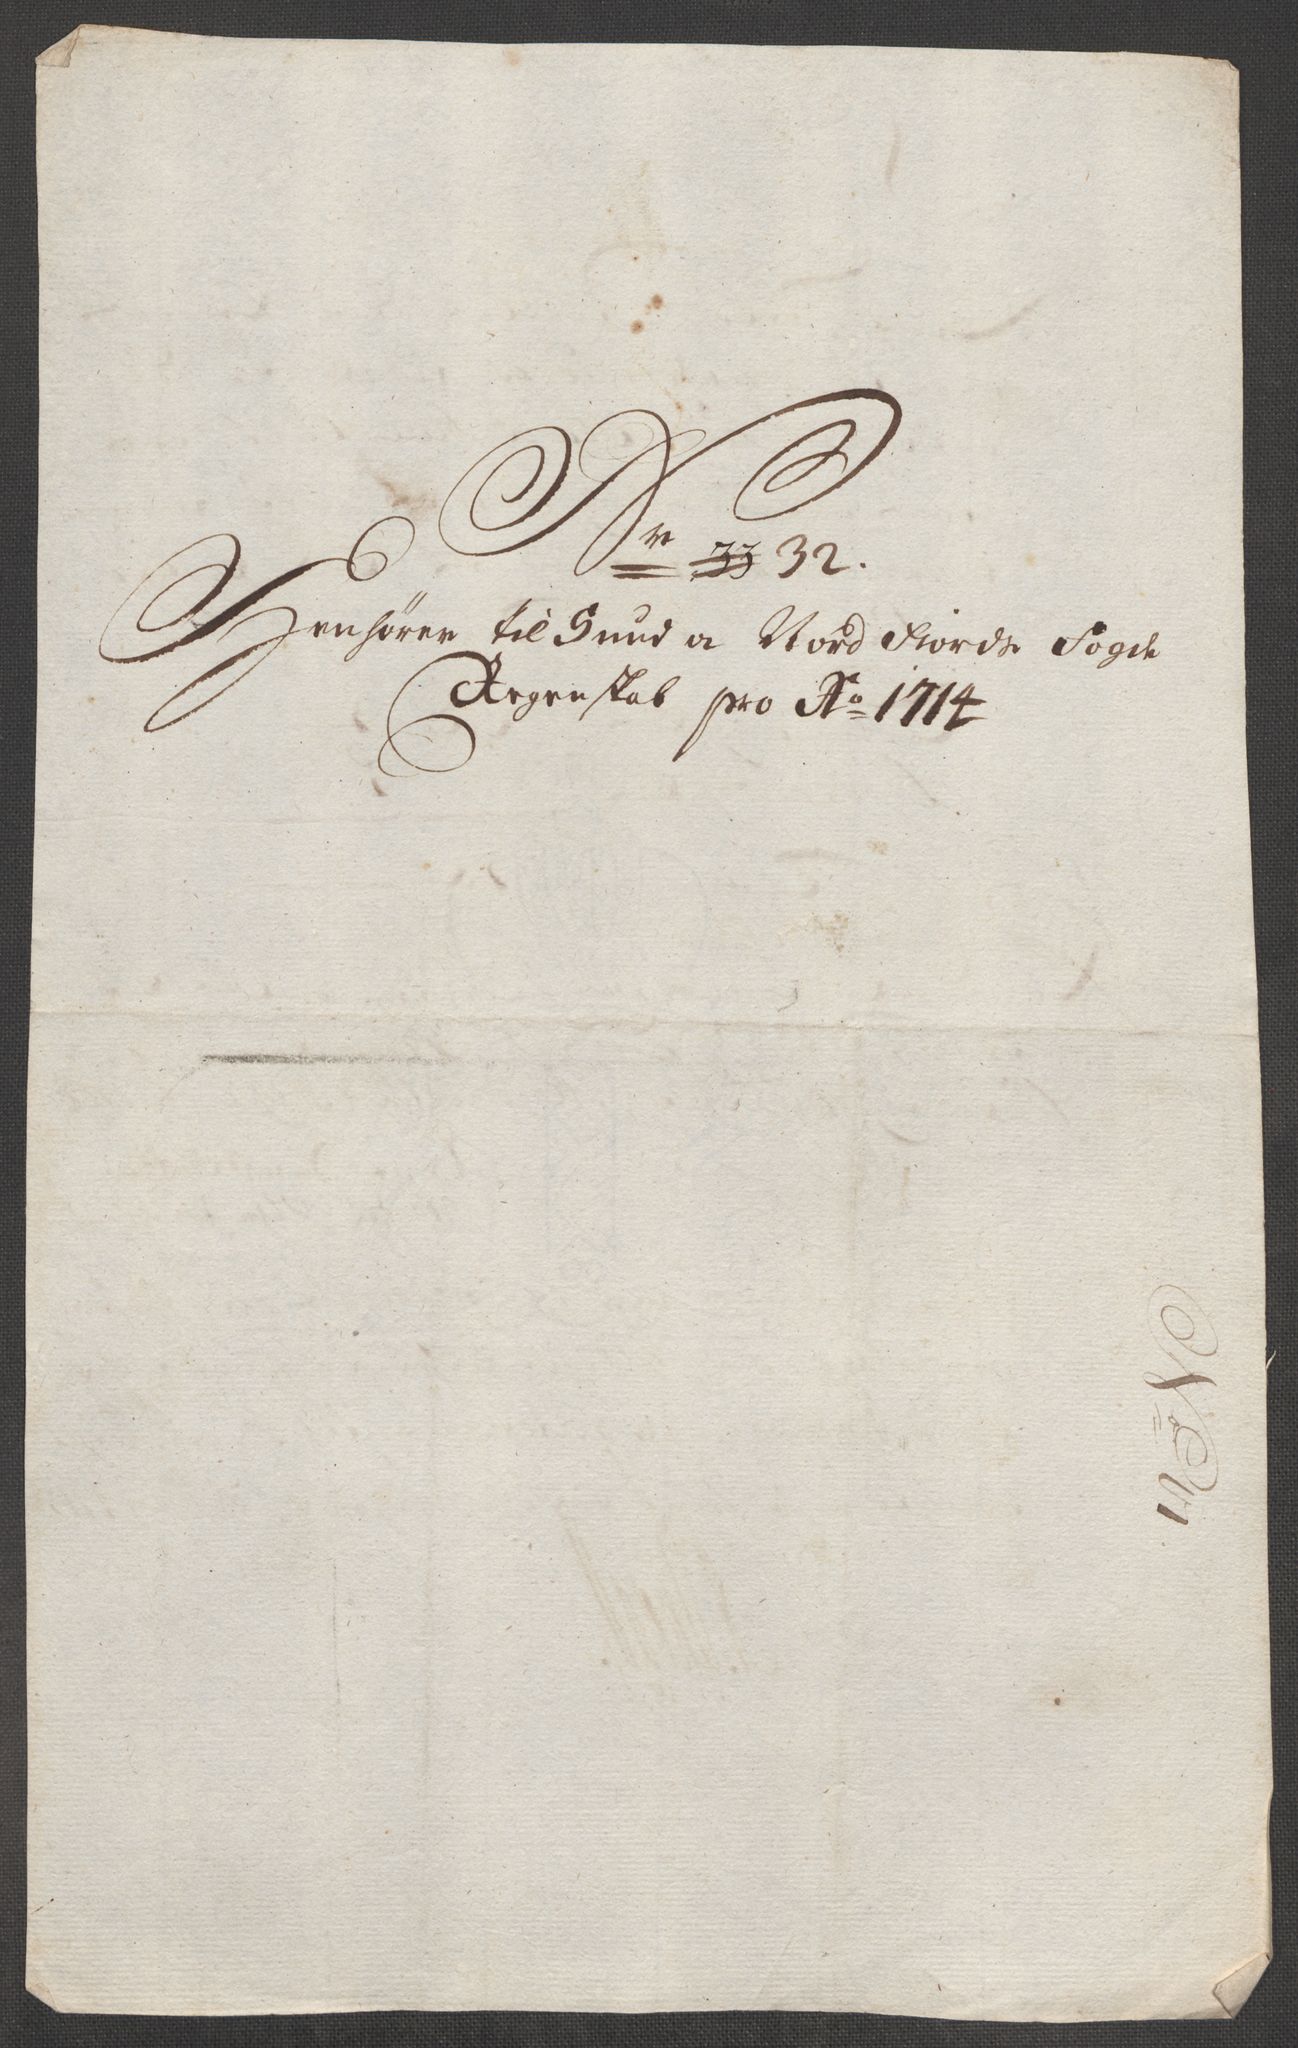 Nr 33 32.
Henhører til Sund og Nordfiords Fogd
Regenskab pro Ao 1714
No VI